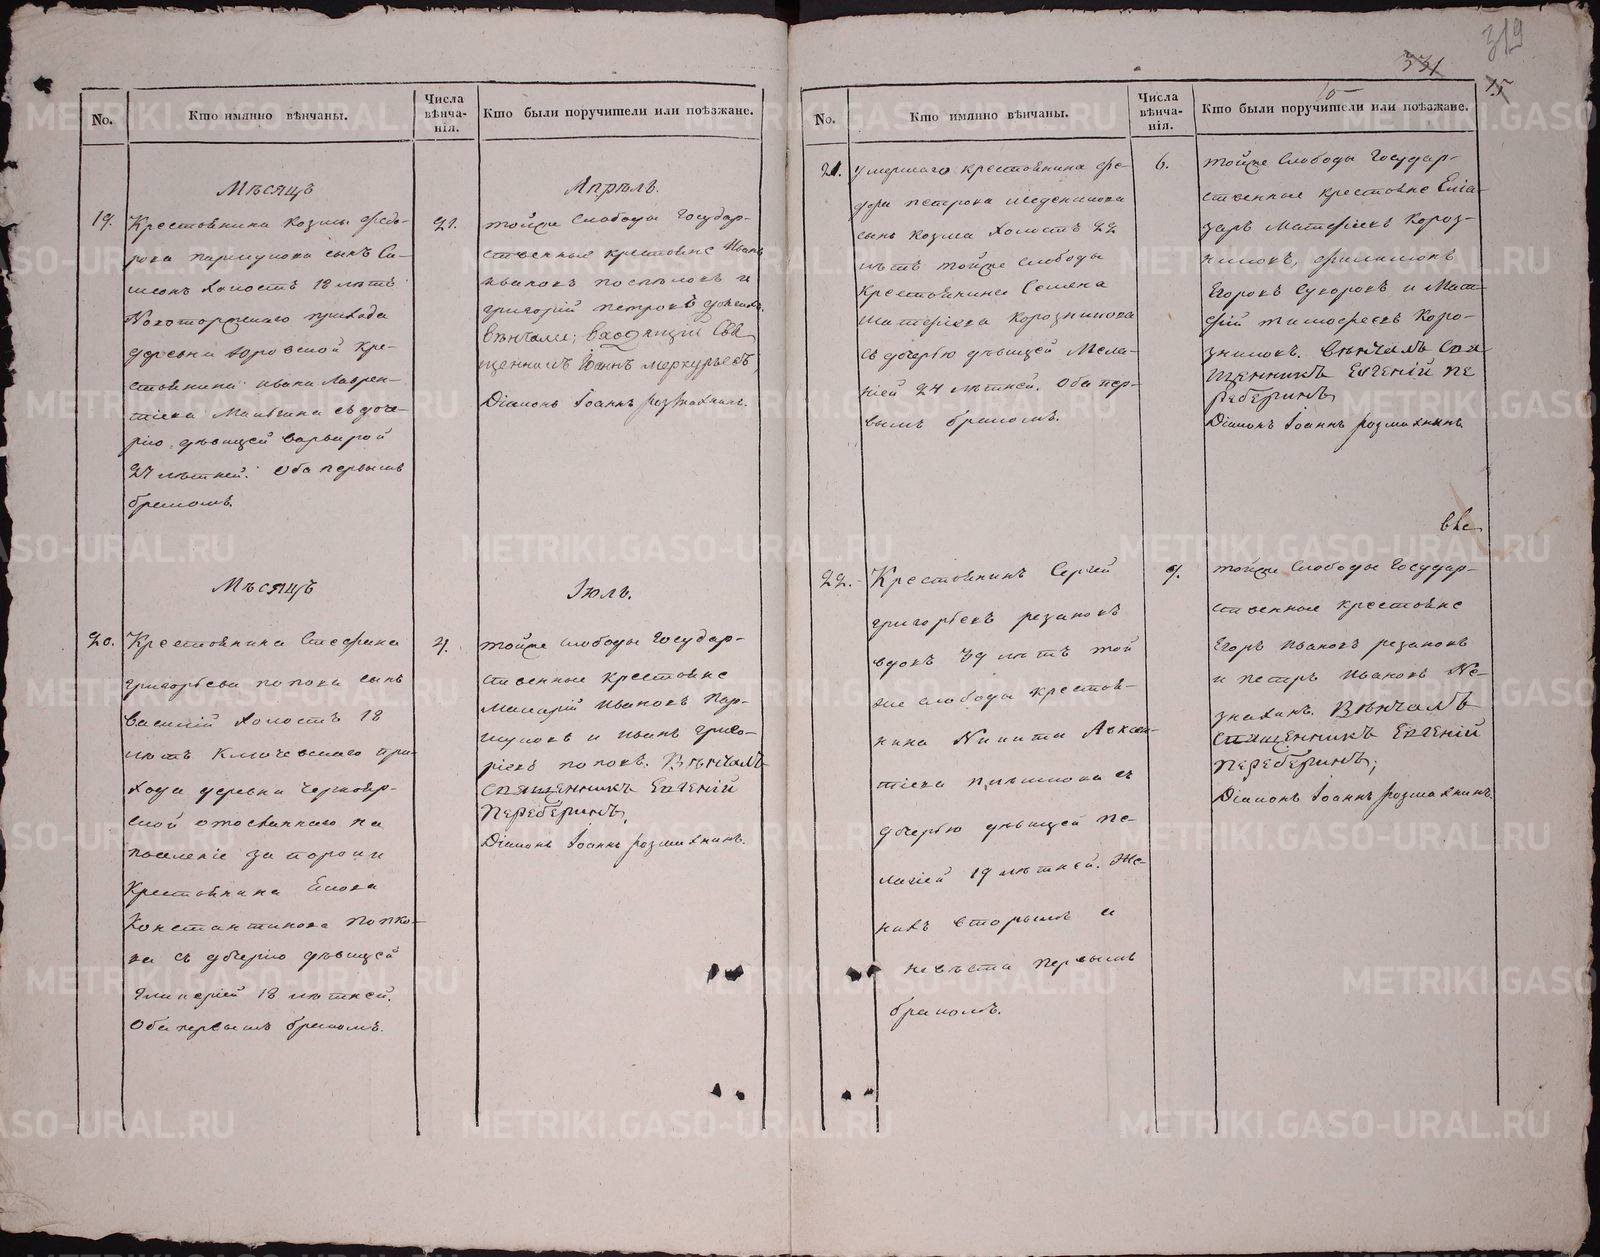 319
331
15
No.
Кто имянно вѣнчаны.
Числа вѣнча-
нія.
Кто были поручители или поѣзжане.
Мѣсяцъ
Апрѣль.
19.
Крестьянина Козмы Федо-
рова сынъ Си-
меонъ холостъ 18 лѣтъ
прихода
деревни кре-
стьянина Ивана Лаврен-
тіева съ доче-
рію дѣвицей Варварой
лѣтней. Оба первымъ
бракомъ.
21.
тойже слободы Государ-
ственные крестьяне Иванъ
Ивановъ и
Григорій Петровъ
Вѣнчали: Свя
щенникъ Іоаннъ Меркурьевъ,
Діаконъ Іоаннъ Розмахнинъ.
Мѣсяцъ
Іюль.
20.
Крестьянина Стефана
Григорьева Попова сынъ
Василій холостъ 18
лѣтъ Ключевскаго при-
хода деревни
на
поселеніе за пороки
Крестьянина
Константинова Попко-
ва съ дочерію дѣвицей
18 лѣтней.
Оба первымъ бракомъ.
4.
тойже слободы Государ-
ственные крестьяне
Макарій Ивановъ Пар-
шуковъ и Иванъ Григо-
ріевъ Поповъ. Вѣнчалъ
священникъ Евгеній
Переберинъ,
Діаконъ Іоаннъ Розмахнинъ.
No.
Кто имянно вѣнчаны.
Числа вѣнча-
нія.
Кто были поручители или поѣзжане.
21.
умершаго крестьянина Фе-
дора Петрова
сынъ Козма холостъ 22
лѣтъ тойже слободы
крестьянина Семена
Матфіева Корозникова
съ дочерью дѣвицей Мела-
ніей 24 лѣтней. Оба пер-
вымъ бракомъ.
6.
тойже слободы Государ-
ственные крестьяне Елиа-
заръ Матфіевъ Короз-
никовъ, Филимонъ
Егоровъ Суворовъ и Мат-
фій Тимофеевъ Коро-
зниковъ. Вѣнчалъ Свя
щенникъ Евгеній Пе
реберинъ
Діаконъ Іоаннъ Розмахнинъ
22.
Крестьянинъ Сергій
Григорьевъ Резановъ
вдовъ 39 лѣтъ той
же слободы крестья-
нина Никиты Авксен-
тіева съ
дочерью дѣвицей Пе-
лагіей 19 лѣтней. Же-
нихъ вторымъ и
невѣста первымъ
бракомъ.
9.
тойже слободы Государ-
ственные крестьяне
Егоръ Ивановъ Резановъ
и Петръ Ивановъ Не-
знахинъ. Вѣнчалъ
священникъ Евгеній
Переберинъ;
Діаконъ Іоаннъ Розмахнинъ.
METRIKI.GASO-URAL.RU